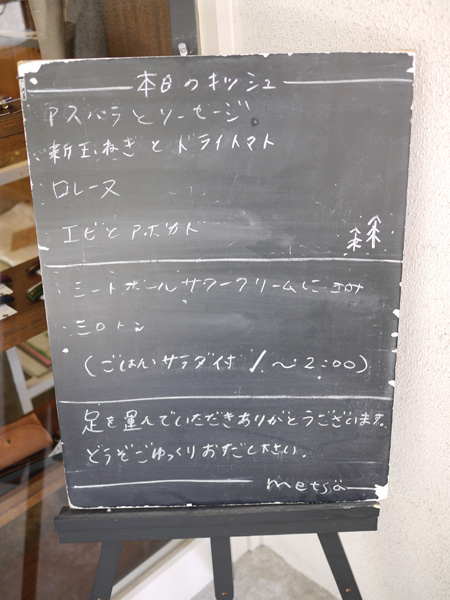 本日のキッシュ
アスパラとソーセージ
新玉ねぎとドライトマト
ロレーヌ
エビとアボカド
ミートボールサワークリームにこみ
ミロトン
(ごはんサラダ付/～2:00)
足を運んでいただきありがとうございます。
どうぞごゆっくりおすごし下さい。
metsä